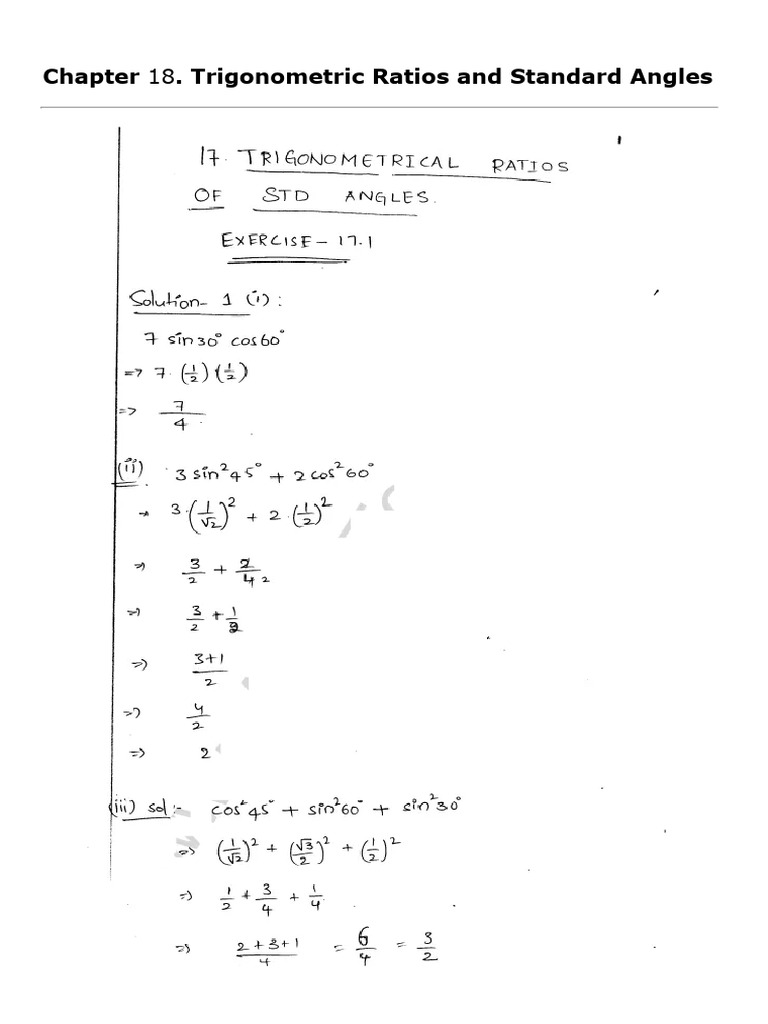 Chapter 18. Trigonometric Ratios and Standard Angles
1
17. TRIGONOMETRICAL RATIOS
OF STD ANGLES.
EXERCISE - 17.1
Solution- 1 (i) :
7 sin30° cos60°
=> 7. (1/2) (1/2)
=> 7/4
(ii) 3 sin²45° + 2 cos²60°
=> 3.(1/√2)² + 2.(1/2)²
=> 3/2 + 2/4 2
=> 3/2 + 1/2
=> 3+1/2
=> 4/2
=> 2
(iii) sol:- cos²45° + sin²60° + sin²30°
=> (1/√2)² + (√3/2)² + (1/2)²
=> 1/2 + 3/4 + 1/4
=> 2+3+1/4 = 6/4 = 3/2